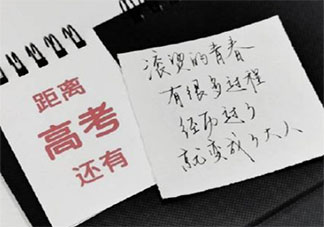 距离
高考
还有
滚烫的青春
有很多过程
经历过了
就变成了大人